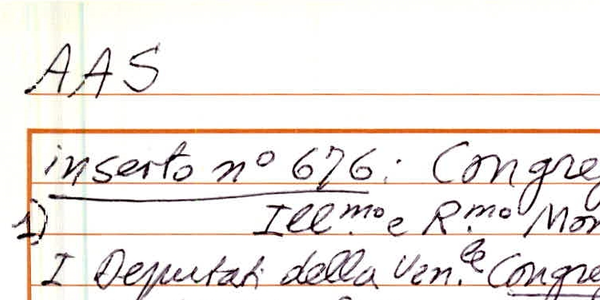 AAS
inserto nº 676: Congre
1) Ill.mo e R.mo Mon
I Deputati della Ven.le Congre